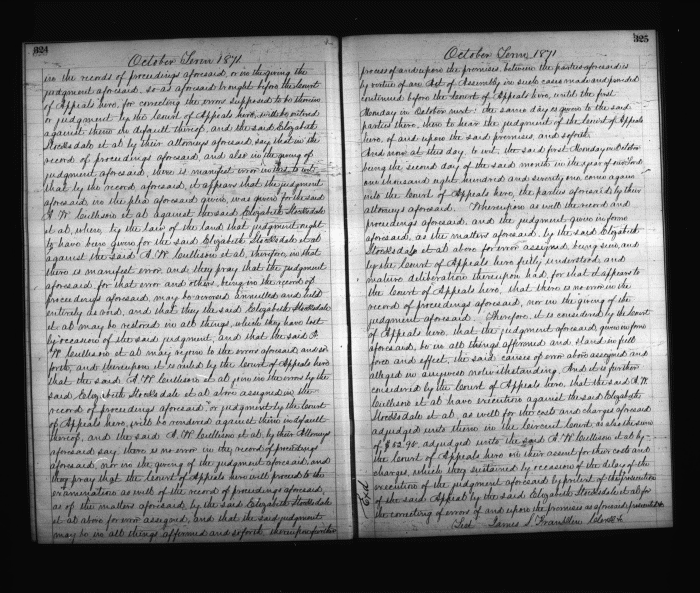 324
October Term 1871
in the records of proceedings aforesaid, or in the giving the
judgment aforesaid, so as aforesaid brought before the Court
of Appeals here, for correcting the error supposed to be therein
or judgment by the Court of Appeals here, will be entered
against them in default thereof, and the said Elizabeth
Stocksdale et al by their attorneys aforesaid, say that in the
record of proceedings aforesaid, and also in the giving of
judgment aforesaid, there is manifest error in this to wit
that by the record aforesaid, it appears that the judgment
aforesaid in the plea aforesaid given, was given for the said
A. W. Cullison et al against the said Elizabeth Stocksdale
et al, where, by the law of the land that judgment ought
to have been given for the said Elizabeth Stocksdale et al
against the said A. W. Cullison et al, therefore, in that
there is manifest error, and they pray that the judgment
aforesaid for that error and others, being in the record of
proceedings aforesaid, may be reversed annulled and held
entirely as void, and that they the said Elizabeth Stocksdale
et al may be restored in all things, which they have lost
by occasion of the said judgment, and that the said A
W. Cullison et al may rejoin to the errors aforesaid, and so
forth, and thereupon it is ruled by the Court of Appeals here
that the said A. W. Cullison et al join in the errors by the
said Elizabeth Stocksdale et al above assigned in the
record of proceedings aforesaid, or judgment by the Court
of Appeals here, will be rendered against them in default
thereof, and the said A. W. Cullison et al, by their Attorneys
aforesaid say there is no error in the record of proceedings
aforesaid, nor in the giving of the judgment aforesaid, and
they pray that the Court of Appeals here will proceed to the
examination as well of the record of proceedings aforesaid,
as of the matters aforesaid, by the said Elizabeth Stocksdale
et al above for error assigned, and that the said judgment
may be in all things affirmed and so forth, thereupon further
325
October Term 1871
process of and upon the premises, between the parties aforesaid is
by virtue of an Act of Assembly in such cases made and provided
continued before the Court of Appeals here, until the first
Monday in October next. the same day is given to the said
parties there, then to hear the judgment of the Court of Appeals
here, of and upon the said premises, and so forth.
And now at this day, to wit, the said first Monday in October
being the second day of the said month in the year of our Lord
one thousand eight hundred and seventy one, come again
into the Court of Appeals here, the parties aforesaid by their
attorneys aforesaid. Whereupon as well the record and
proceedings aforesaid, and the judgment given in form
aforesaid, as the matters aforesaid, by the said Elizabeth
Stocksdale et al above for error assigned, being seen, and
by the Court of Appeals here fully understood, and
mature deliberation thereupon had, for that it appears to
the Court of Appeals here, that there is no error in the
record of proceedings aforesaid, nor in the giving of the
judgment aforesaid. Therefore, it is considered by the Court
of Appeals here, that the judgment aforesaid, given in form
aforesaid, be in all things affirmed and stand in full
force and effect, the said causes of error above assigned and
alleged in anywise notwithstanding. And it is further
considered by the Court of Appeals here, that the said A. W.
Cullison et al have execution against the said Elizabeth
Stocksdale et al, as well for the costs and charges aforesaid
adjudged unto them in the Circuit Court as also the sum
of adjudged unto the said A. W. Cullison et al by
the Court of Appeals here on their assent for their costs and
charges, which they sustained by occasion of the delay of the
execution of the judgment aforesaid by pretext of the prosecution
of the said Appeal by the said Elizabeth Stocksdale et al for
the correcting of errors of and upon the premises as aforesaid, prosecuted &c
Test James S. Franklin Clerk &c